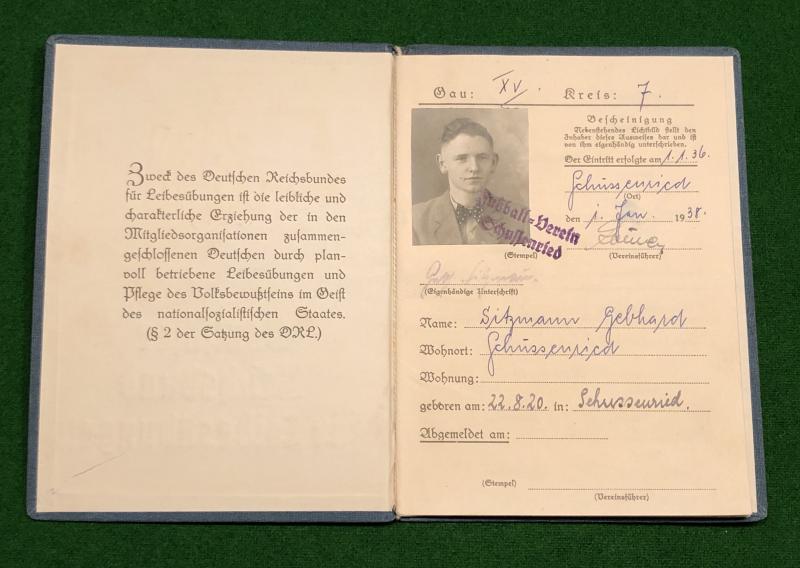 Zweck des Deutschen Reichsbundes
für Leibesübungen ist die leibliche und
charakterliche Erziehung der in den
Mitgliedsorganisationen zusammen-
geschlossenen Deutschen durch plan-
voll betriebene Leibesübungen und
Pflege des Volksbewußtseins im Geist
des nationalsozialistischen Staates.
(§ 2 der Satzung des DRL.)
Gau: XV. Kreis: 7.
Bescheinigung
Nebenstehendes Lichtbild stellt den
Inhaber dieses Ausweises dar und ist
von ihm eigenhändig unterschrieben.
Der Eintritt erfolgte am 1.1.36.
Schussenried
(Ort)
den 1. Jan. 1938.
Fußball-Verein
Schussenried
(Stempel) (Vereinsführer)
(Eigenhändige Unterschrift)
Name: Sitzmann Gebhard
Wohnort: Schussenried
Wohnung:
geboren am: 22.8.20. in: Schussenried.
Abgemeldet am:
(Stempel)
(Vereinsführer)